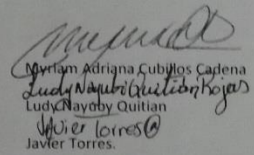 Myriam Adriana Cubillos Cadena
Ludy Nayubi Quitián Rojas
Ludy Nayuby Quitian
Javier Torres
Javier Torres.